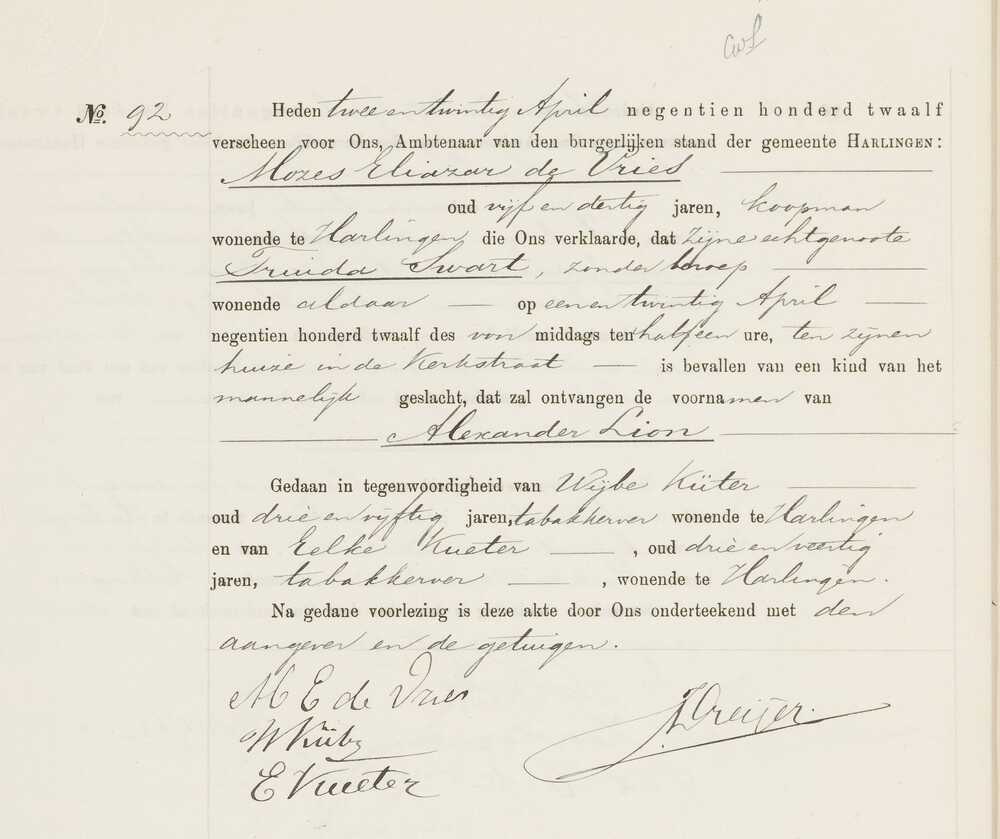 No. 92
Heden twee en twintig April negentien honderd twaalf
verscheen voor Ons, Ambtenaar van den burgerlijken stand der gemeente HARLINGEN:
Mozes Eliazar de Vries
oud vijf en dertig jaren, koopman
wonende te Harlingen die Ons verklaarde, dat zijne echtgenoote
Truida Swart, zonder beroep
wonende aldaar — op een en twintig April —
negentien honderd twaalf des voormiddags ten half een ure, ten zijnen
huize in de Kerkstraat — is bevallen van een kind van het
mannelijk geslacht, dat zal ontvangen de voornamen van
Alexander Lion
Gedaan in tegenwoordigheid van Wijbe Küter
oud drie en vijftig jaren, tabakkerver wonende te Harlingen
en van Eelke Kueter — , oud drie en veertig
jaren, tabakkerver — , wonende te Harlingen.
Na gedane voorlezing is deze akte door Ons onderteekend met den
aangever en de getuigen.
M E de Vries
W Küter
E Kueter